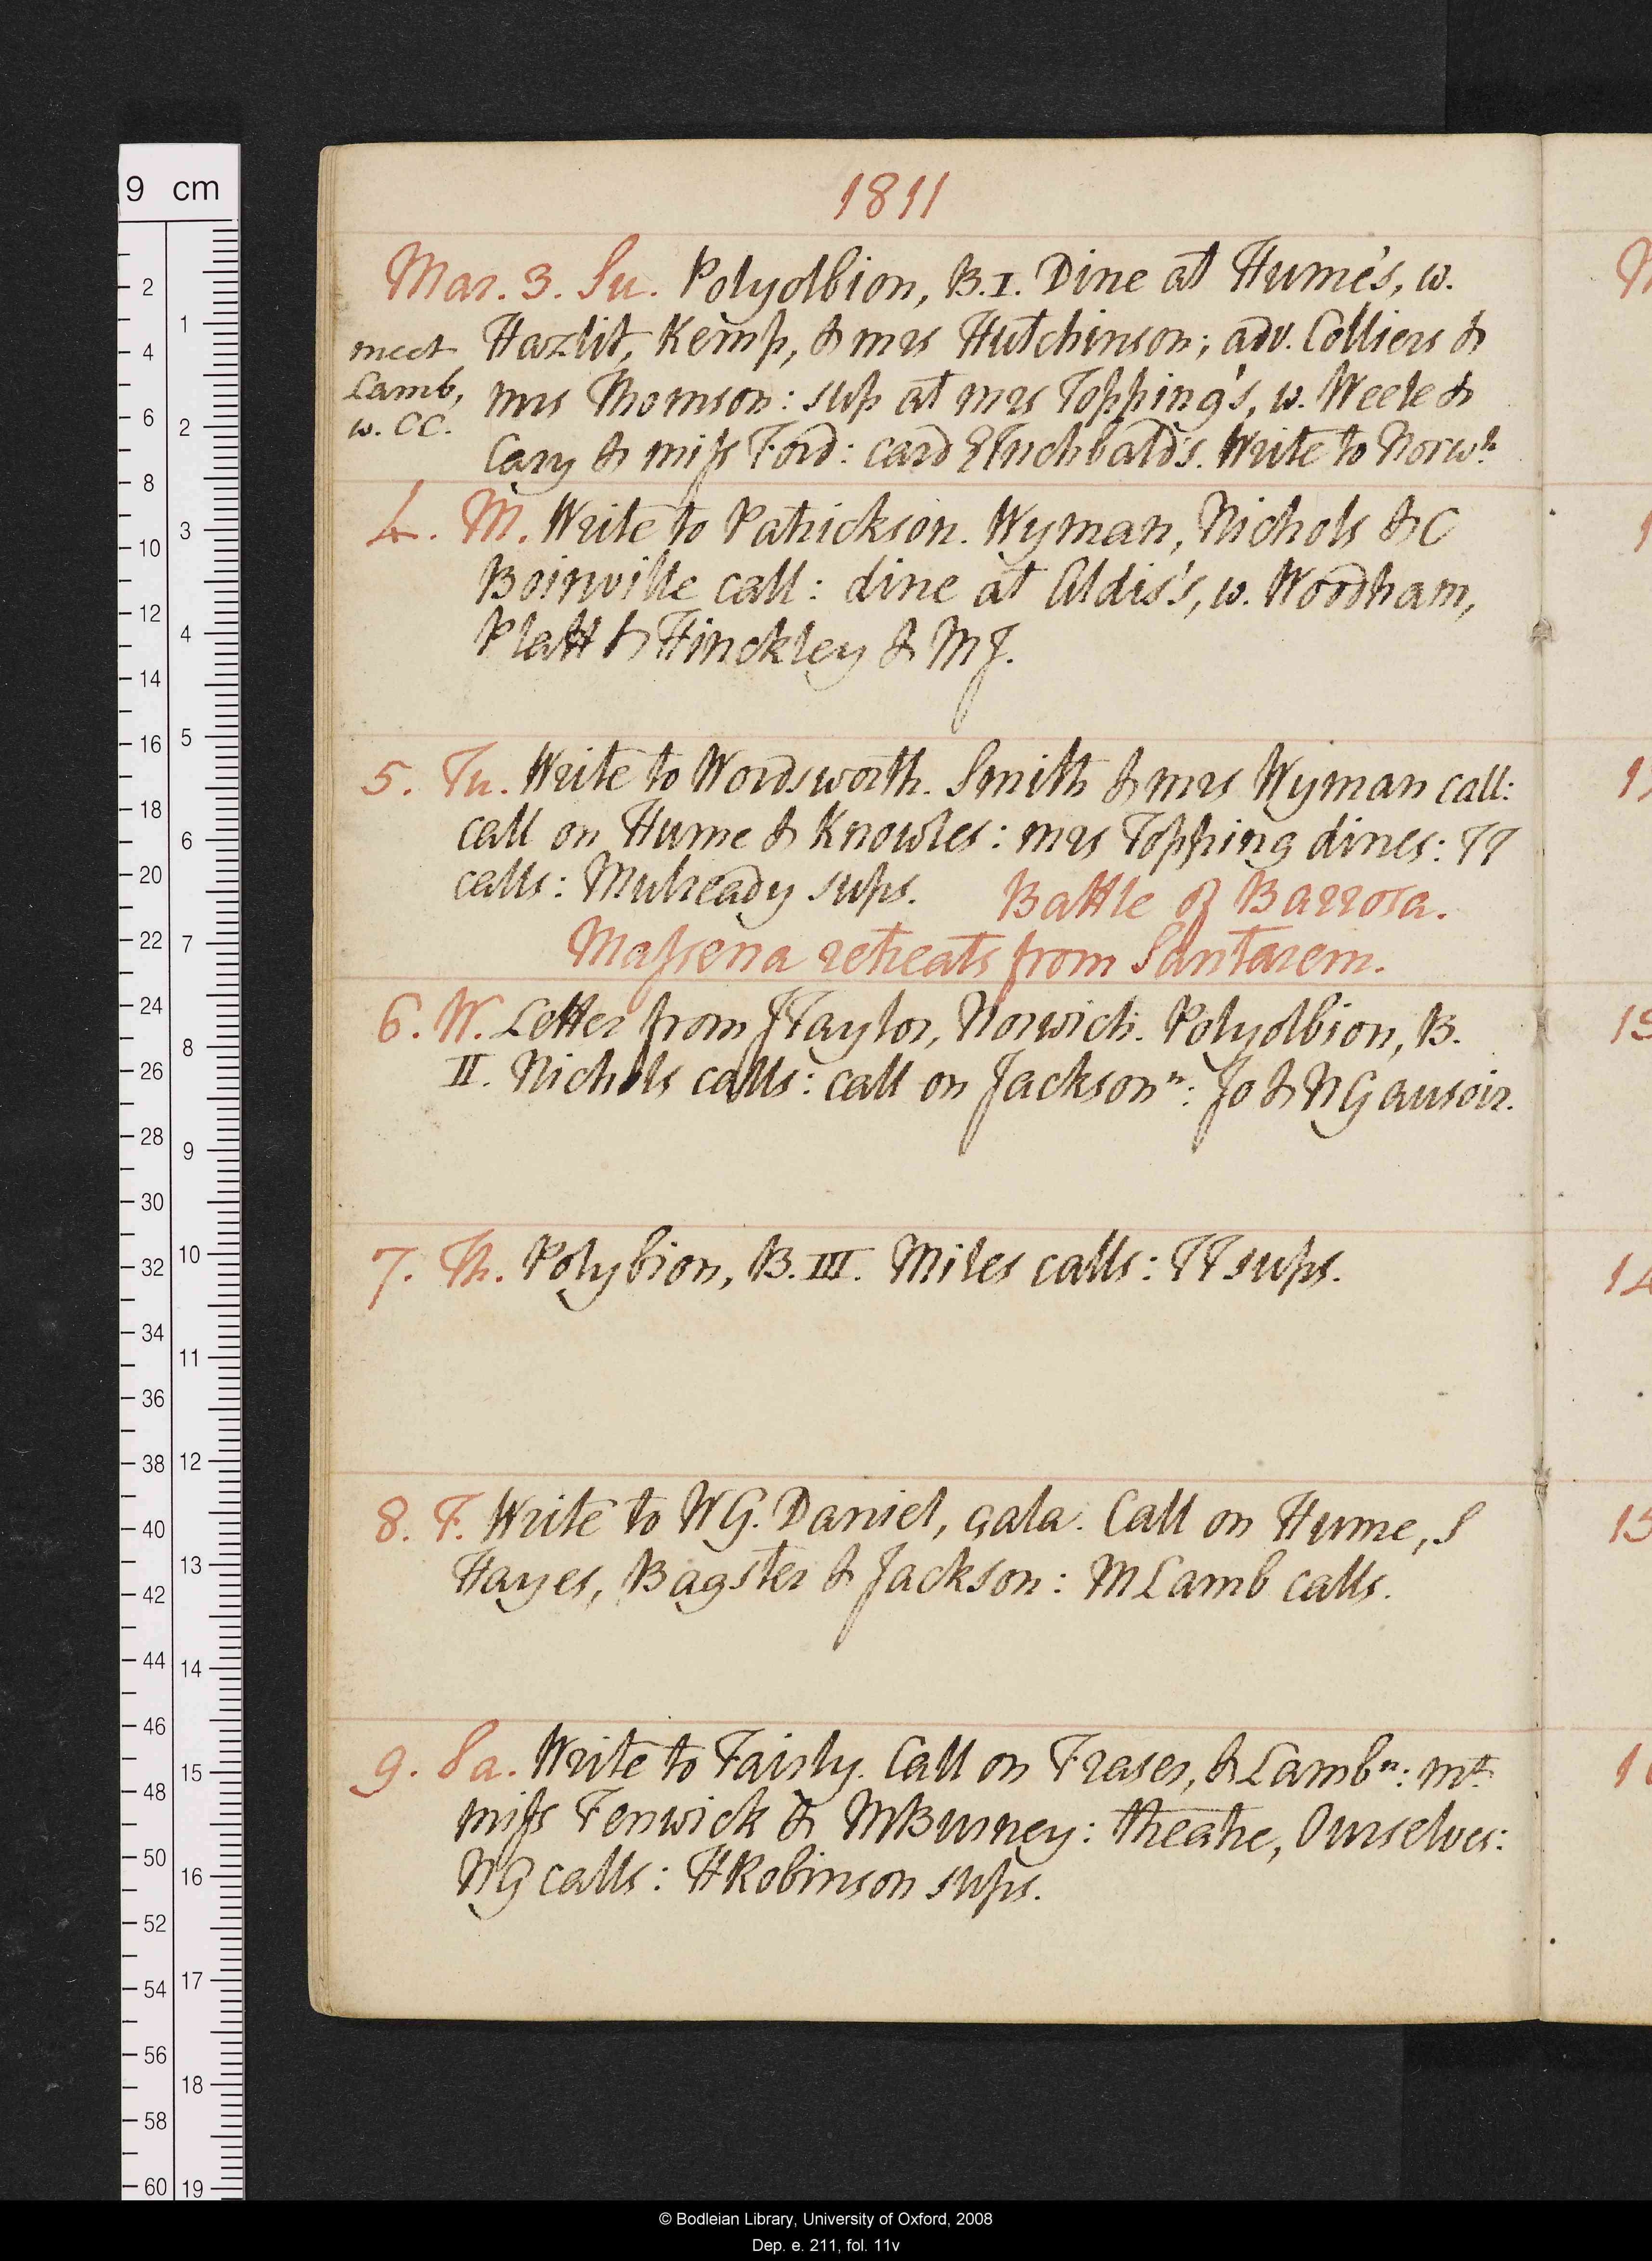 1811
Mar. 3. Su. Polyolbion, B. I. Dine at Hume's, w.
Hazlit, Kemp, & mrs Hutchinson; adv. Colliers &
mrs Thomson: sup at mrs Topping's, w. Weele &
Cary & miss Ford: card EInchbald's. Write to Norwh
meet
Lamb,
w. CC.
4. M. Write to Patrickson. Wyman, Nichols & C
Boinville call: dine at Aldis's, w. Woodham,
Platt & Hinckley & MJ.
5. Tu. Write to Wordsworth. Smith & mrs Wyman call:
call on Hume & Knowles: mrs Topping dines: TT
calls: Mulready sups. Battle of Barrosa.
Massena retreats from Santarem.
6. W. Letter from JTaylor, Norwich. Polyolbion, B.
II. Nichols calls: call on Jackson n: Jo & NG au soir.
7. Th. Polybion, B. III. Miles calls: TT sups.
8. F. Write to WG. Daniel, çala. Call on Hume, S
Hayes, Bagster & Jackson: M Lamb calls.
9. Sa. Write to Fairly. Call on Fraser, & Lamb n: mt.
miss Fenwick & MBurney: theatre, Ourselves:
NG calls: HRobinson sups.
9 cm
2
4
6
8
10
12
14
16
18
20
22
24
26
28
30
32
34
36
38
40
42
44
46
48
50
52
54
56
58
60
1
2
3
4
5
6
7
8
9
10
11
12
13
14
15
16
17
18
19
© Bodleian Library, University of Oxford, 2008
Dep. e. 211, fol. 11v